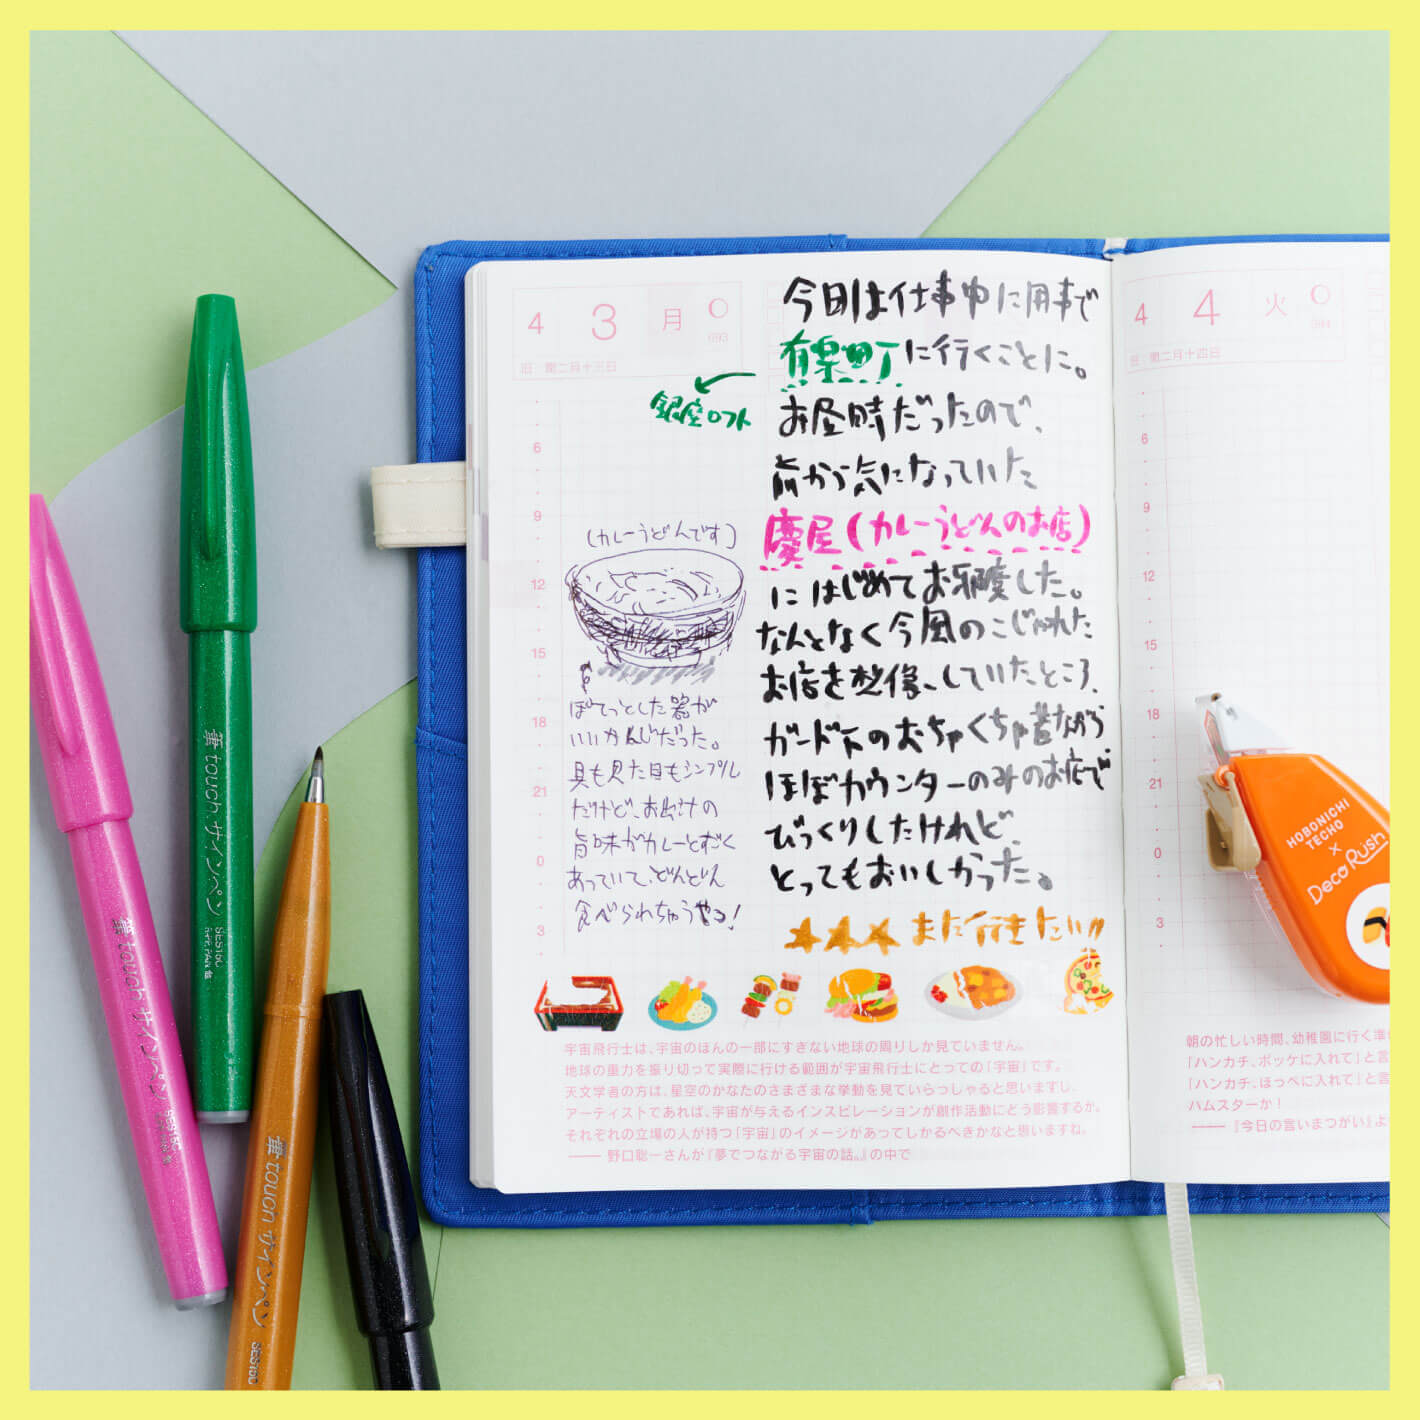 4 3 月
093
旧 閏二月十三日
今日は仕事中に用事で
有楽町に行くことに。
銀座ロフト
お昼時だったので、
前から気になっていた
慶屋(カレーうどんのお店)
にはじめてお邪魔した。
なんとなく今風のこじゃれた
お店を想像していたところ、
ガード下のおちゃくちゃ昔ながら
ほぼカウンターのみのお店で
びっくりしたけれど、
とってもおいしかった。
★★★ また行きたい!!
(カレーうどんです)
ぽてっとした器が
いいかんじだった。
具も見た目もシンプル
だけど、お出汁の
旨味がカレーとすごく
あっていて、どんどん
食べられちゃうやつ!
6
9
12
15
18
21
0
3
宇宙飛行士は、宇宙のほんの一部にすぎない地球の周りしか見ていません。
地球の重力を振り切って実際に行ける範囲が宇宙飛行士にとっての「宇宙」です。
天文学者の方は、星空のかなたのさまざまな挙動を見ていらっしゃると思いますし、
アーティストであれば、宇宙が与えるインスピレーションが創作活動にどう影響するか。
それぞれの立場の人が持つ「宇宙」のイメージがあってしかるべきかなと思いますね。
―― 野口聡一さんが『夢でつながる宇宙の話。』の中で
4 4 火
094
旧 閏二月十四日
6
9
12
15
18
21
0
3
朝の忙しい時間、幼稚園に行く準
「ハンカチ、ポッケに入れて」と言
「ハンカチ、ほっぺに入れて」と言
ハムスターか!
―― 『今日の言いまつがい』よ
HOBONICHI
TECHO
×
Deco Rush
筆touch サインペン SES15C
筆touch サインペン SES15C
筆touch サインペン SES15C